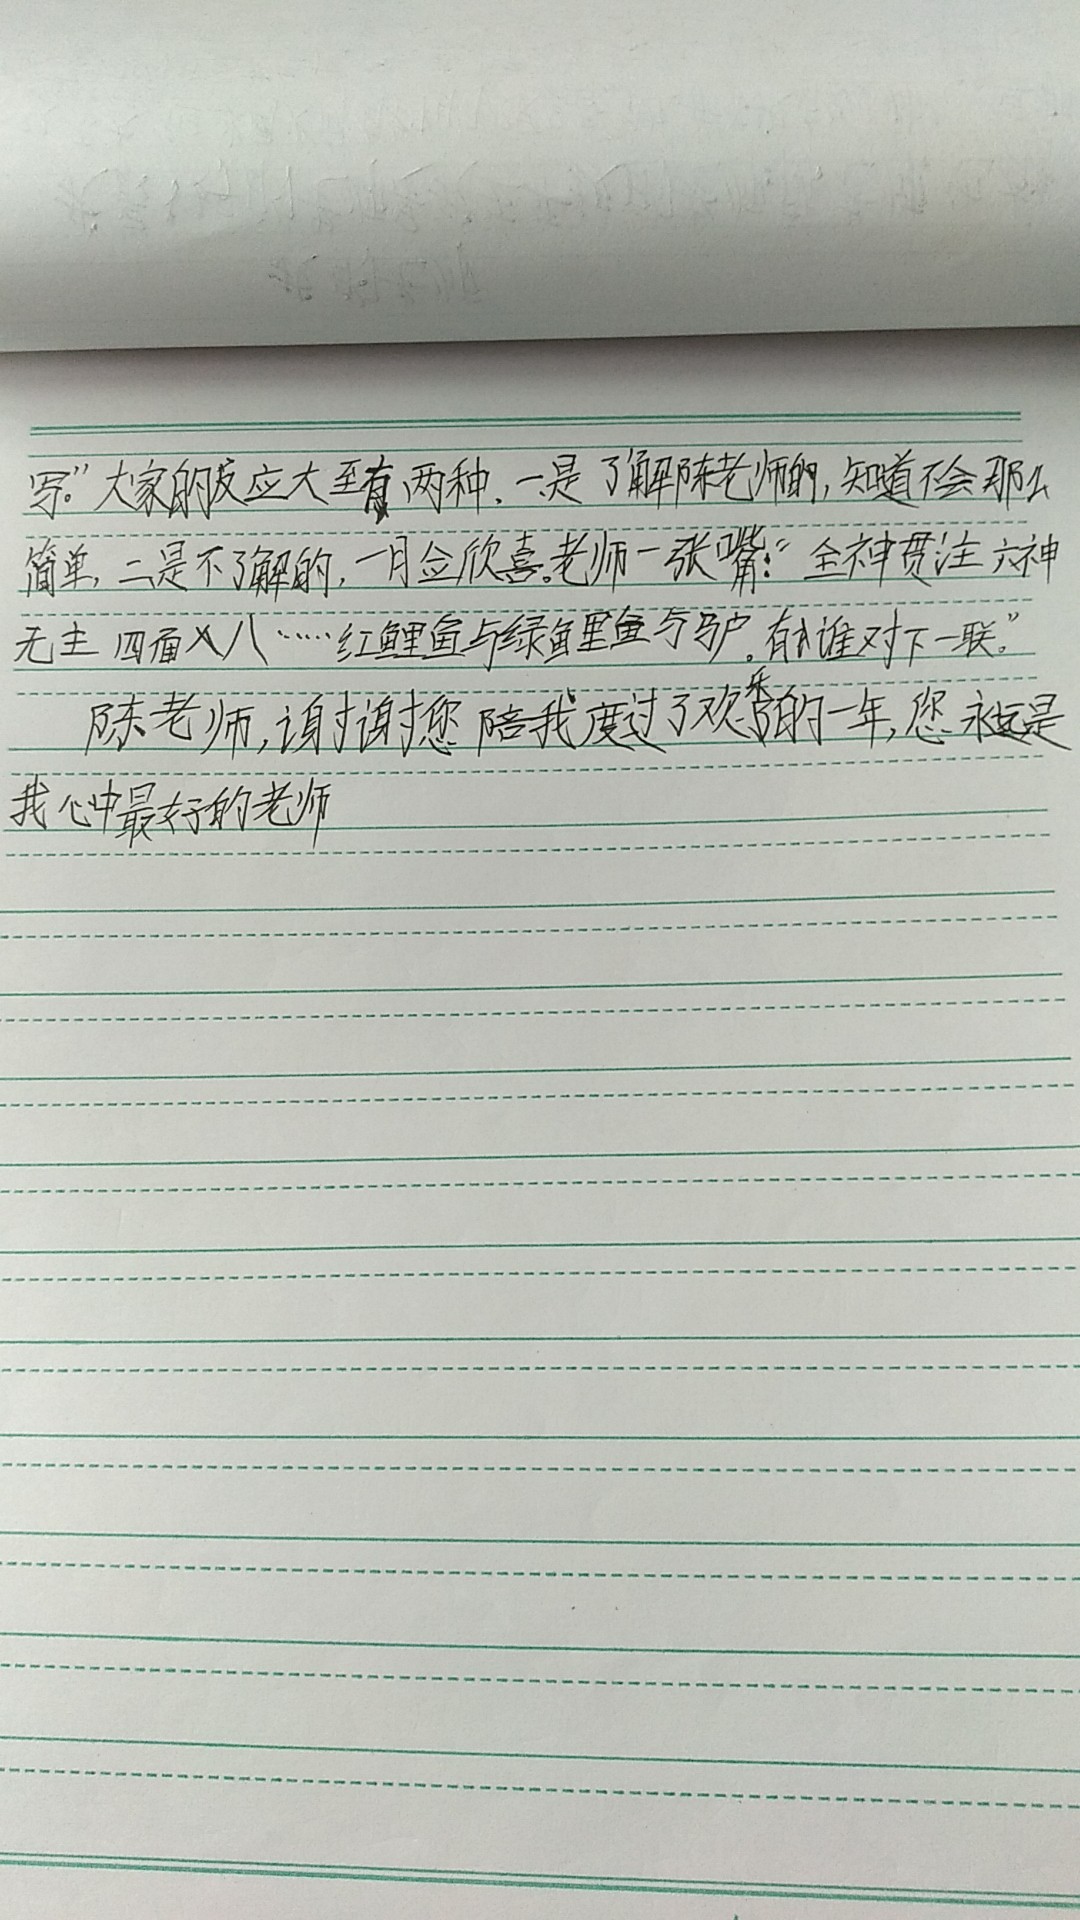 写。”大家的反应大至有两种，一是了解陈老师的，知道不会那么
简单，二是不了解的，一月金欣喜。老师一张嘴：“全神贯注 六神
无主 四面 八……红鲤鱼与绿鲤鱼与驴。有谁对下一联。”
陈老师，谢谢您陪我度过了欢乐的一年，您永远是
我心中最好的老师